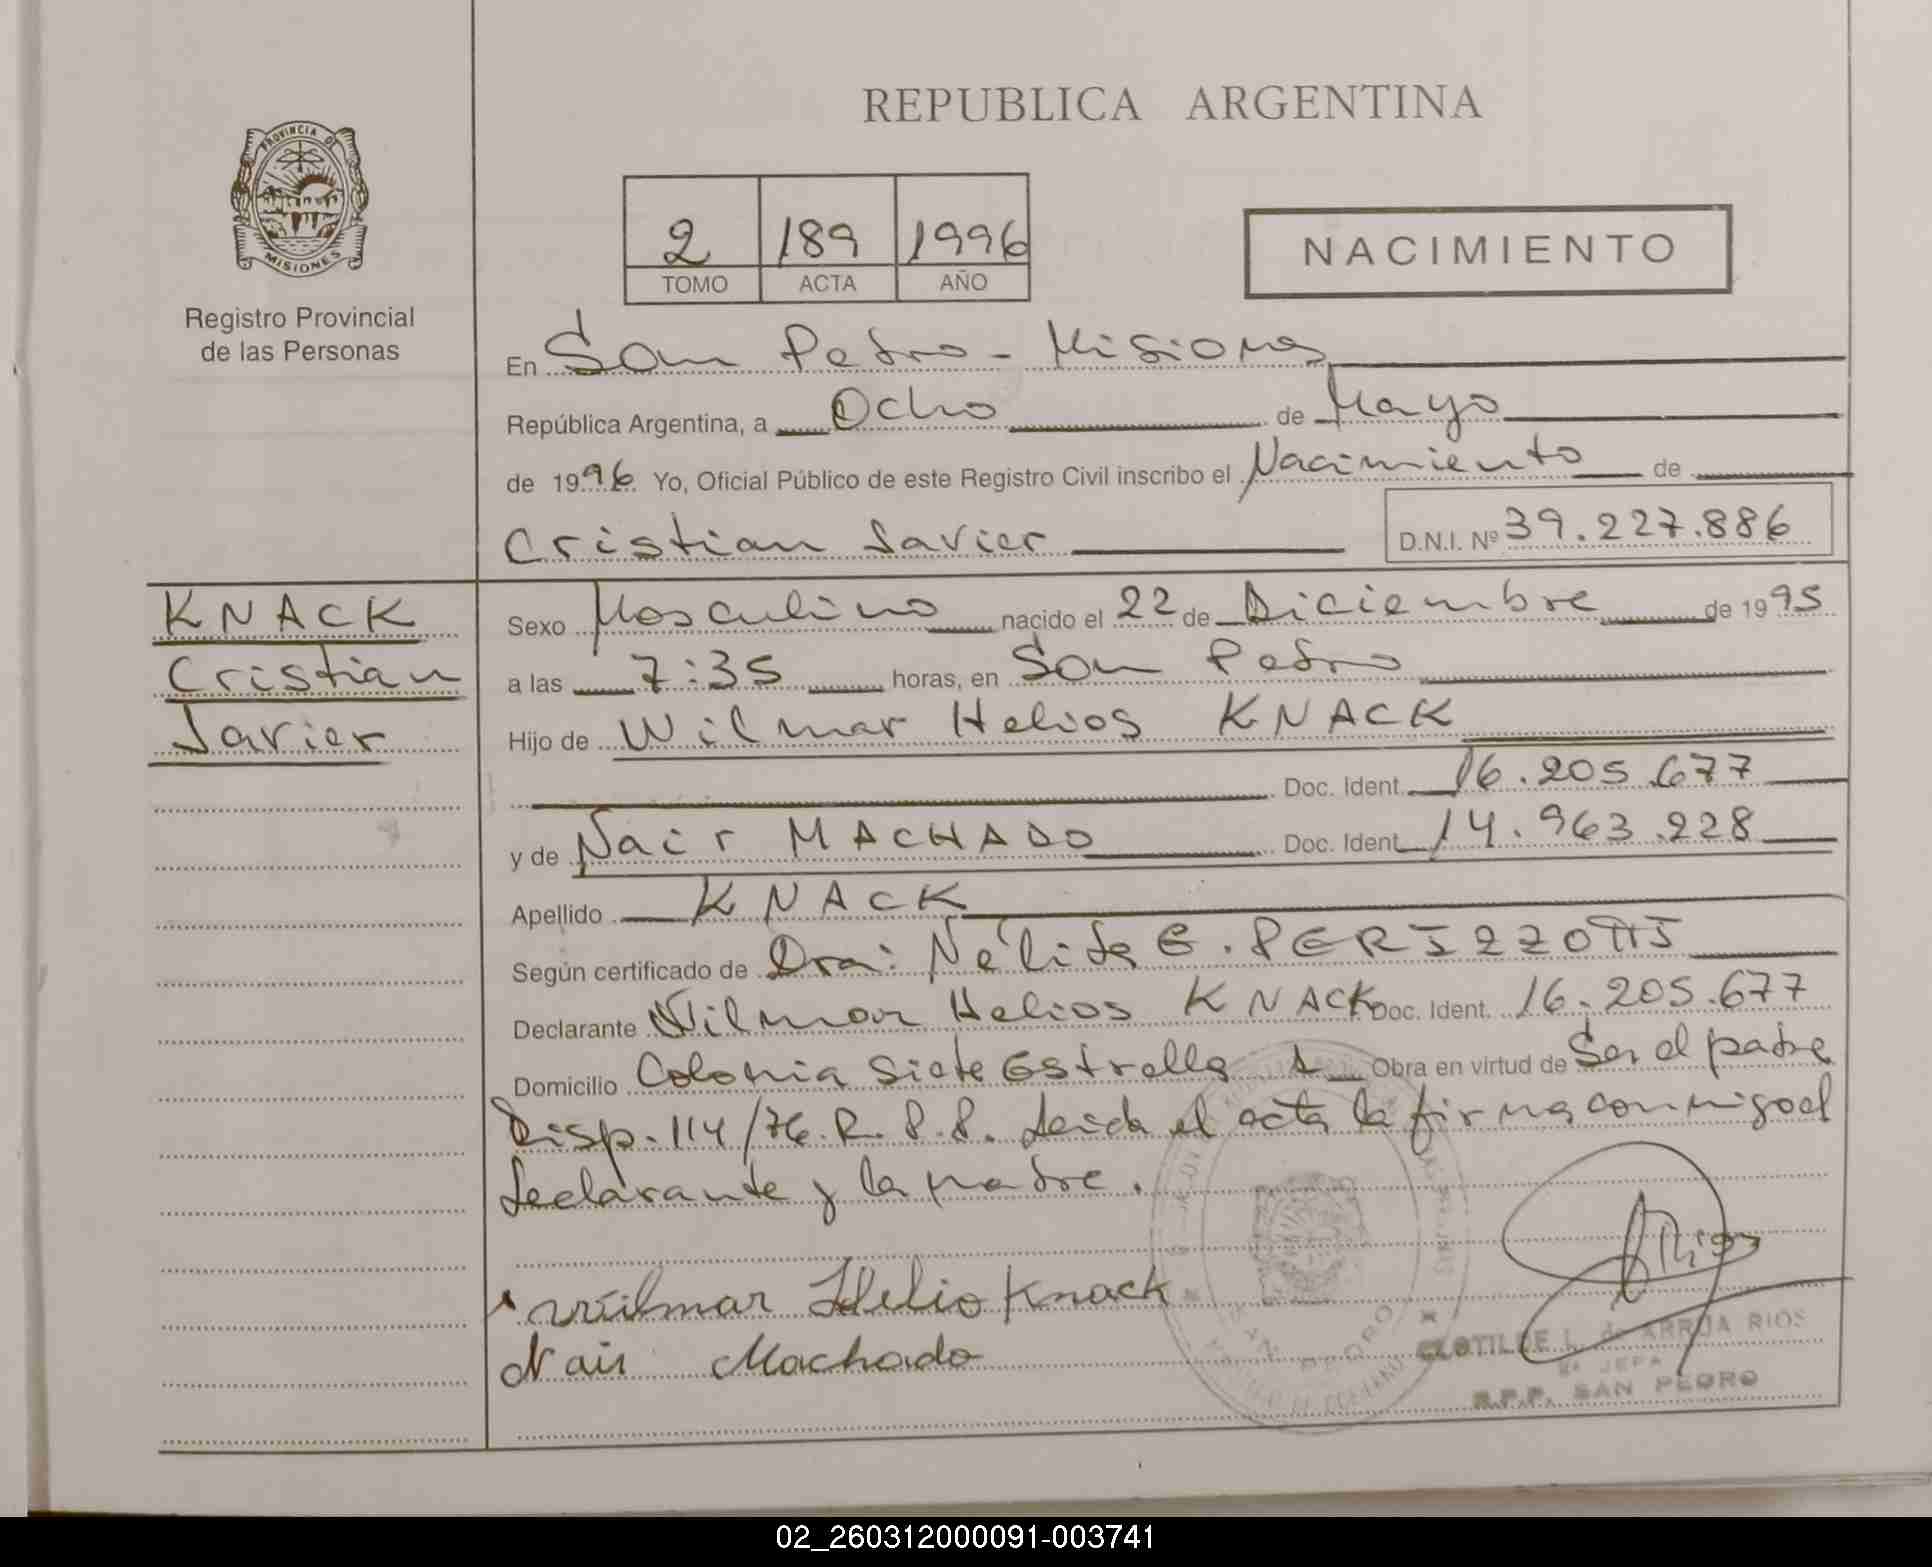 PROVINCIA DE
MISIONES
Registro Provincial
de las Personas
REPUBLICA ARGENTINA
2 189 1996
TOMO ACTA AÑO
NACIMIENTO
En San Pedro - Misiones
República Argentina, a Ocho de Mayo
de 1996 Yo, Oficial Público de este Registro Civil inscribo el Nacimiento de
Cristian Javier D.N.I. Nº 39.227.886
KNACK
Cristian
Javier
Sexo Masculino nacido el 22 de Diciembre de 1995
a las 7:35 horas, en San Pedro
Hijo de Wilmar Helios KNACK
Doc. Ident. 16.205.677
y de Nair MACHADO Doc. Ident. 14.963.228
Apellido KNACK
Según certificado de Dra: Nélida E. PERIZZOTTI
Declarante Wilmar Helios KNACK Doc. Ident. 16.205.677
Domicilio Colonia Siete Estrellas Obra en virtud de Ser el padre
Disp. 114/76.R.P.P. Leida el acta la firma conmigo el
declarante y la madre.
Wilmar Helio Knack
Nair Machado
ARios
CLOTILDE L. de ARRUA RIOS
JEFA
R.P.P. SAN PEDRO
SAN PEDRO
02_260312000091-003741